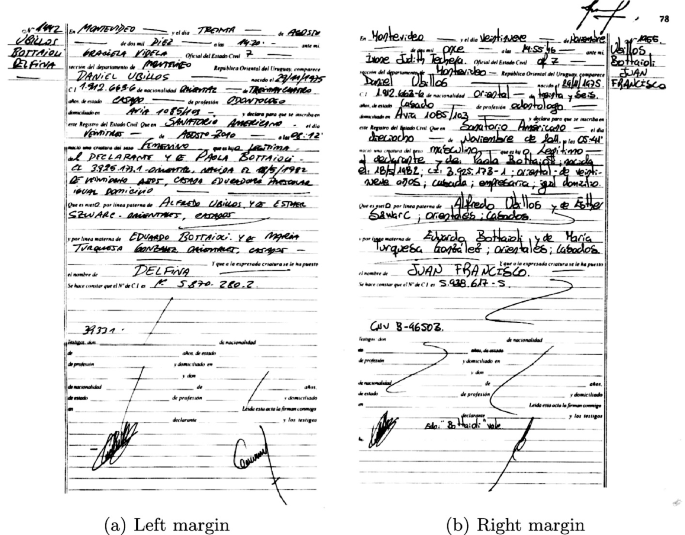 78
Nº 1442 En MONTEVIDEO y el día TREINTA de AGOSTO
UBILLOS de dos mil DIEZ a las 14:20 ante mí
BOTTAIOLI GRACIELA VIDELA Oficial del Estado Civil 7
DELFINA sección del departamento de MONTEVIDEO República Oriental del Uruguay, comparece
DANIEL UBILLOS nacido el
C I 1.912.663-6 de nacionalidad ORIENTAL de TREINTA Y CUATRO
años, de estado CASADO de profesión ODONTOLOGO
domiciliado en AVIA 1085/103 y declara para que se inscriba en
este Registro del Estado Civil Que en SANATORIO AMERICANO el día
VEINTITRES de AGOSTO 2010 a las
nació una criatura del sexo FEMENINO que es hija LEGITIMA
del DECLARANTE Y DE PAOLA BOTTAIOLI
CI 3925.173.1 ORIENTAL, NACIDA EL 18/5/1982
DE VEINTIOCHO AÑOS, CASADA
IGUAL DOMICILIO
Que es niet por línea paterna de ALFREDO UBILLOS Y DE ESTHER
SZWARC. ORIENTALES, CASADOS
y por línea materna de EDUARDO BOTTAIOLI. Y DE MARIA
TURQUESA GONZALEZ ORIENTALES, CASADOS
Y que a la expresada criatura se le ha puesto
el nombre de DELFINA
Se hace constar que el Nº de C I es Nº 5.870.280.2
39331.
Testigos don de nacionalidad
de años, de estado
de profesión y domiciliado en
y don
de nacionalidad de años,
de estado de profesión y domiciliado
en Leída esta acta la firman conmigo
declarante y los testigos
En Montevideo y el día veintinueve de Noviembre
de dos mil once a las 14:55 ante mí Ubillos
Irene Judith Techera Oficial del Estado Civil de 7 Bottaioli
sección del departamento de Montevideo República Oriental del Uruguay, comparece JUAN
Daniel Ubillos nacido el FRANCISCO
C I 1.912.663-6 de nacionalidad oriental de treinta y seis
años, de estado Casado de profesión odontólogo
domiciliado en Avia 1085/103 y declara para que se inscriba en
este Registro del Estado Civil Que en Sanatorio Americano el día
dieciocho de Noviembre de 2011, a las 05:41
nació una criatura del sexo masculino que es hijo Legítimo
del declarante y de Paola Bottaioli, nacida
el 18/5/1982, CI: 3.925.173-1, oriental, de veinti-
nueve años, casada, empresaria, igual domicilio.
Que es niet por línea paterna de Alfredo Ubillos y de Esther
Szwarc, orientales, casados.
y por línea materna de Eduardo Bottaioli y de María
Turquesa González, orientales, casados
Y que a la expresada criatura se le ha puesto
el nombre de JUAN FRANCISCO.
Se hace constar que el Nº de C I es 5.938.617-5.
CNV B-46503.
Testigos don de nacionalidad
de años, de estado
de profesión y domiciliado en
y don
de nacionalidad de años,
de estado de profesión y domiciliado
en Leída esta acta la firman conmigo
declarante y los testigos
Edo. "Bottaioli" vale
(a) Left margin
(b) Right margin